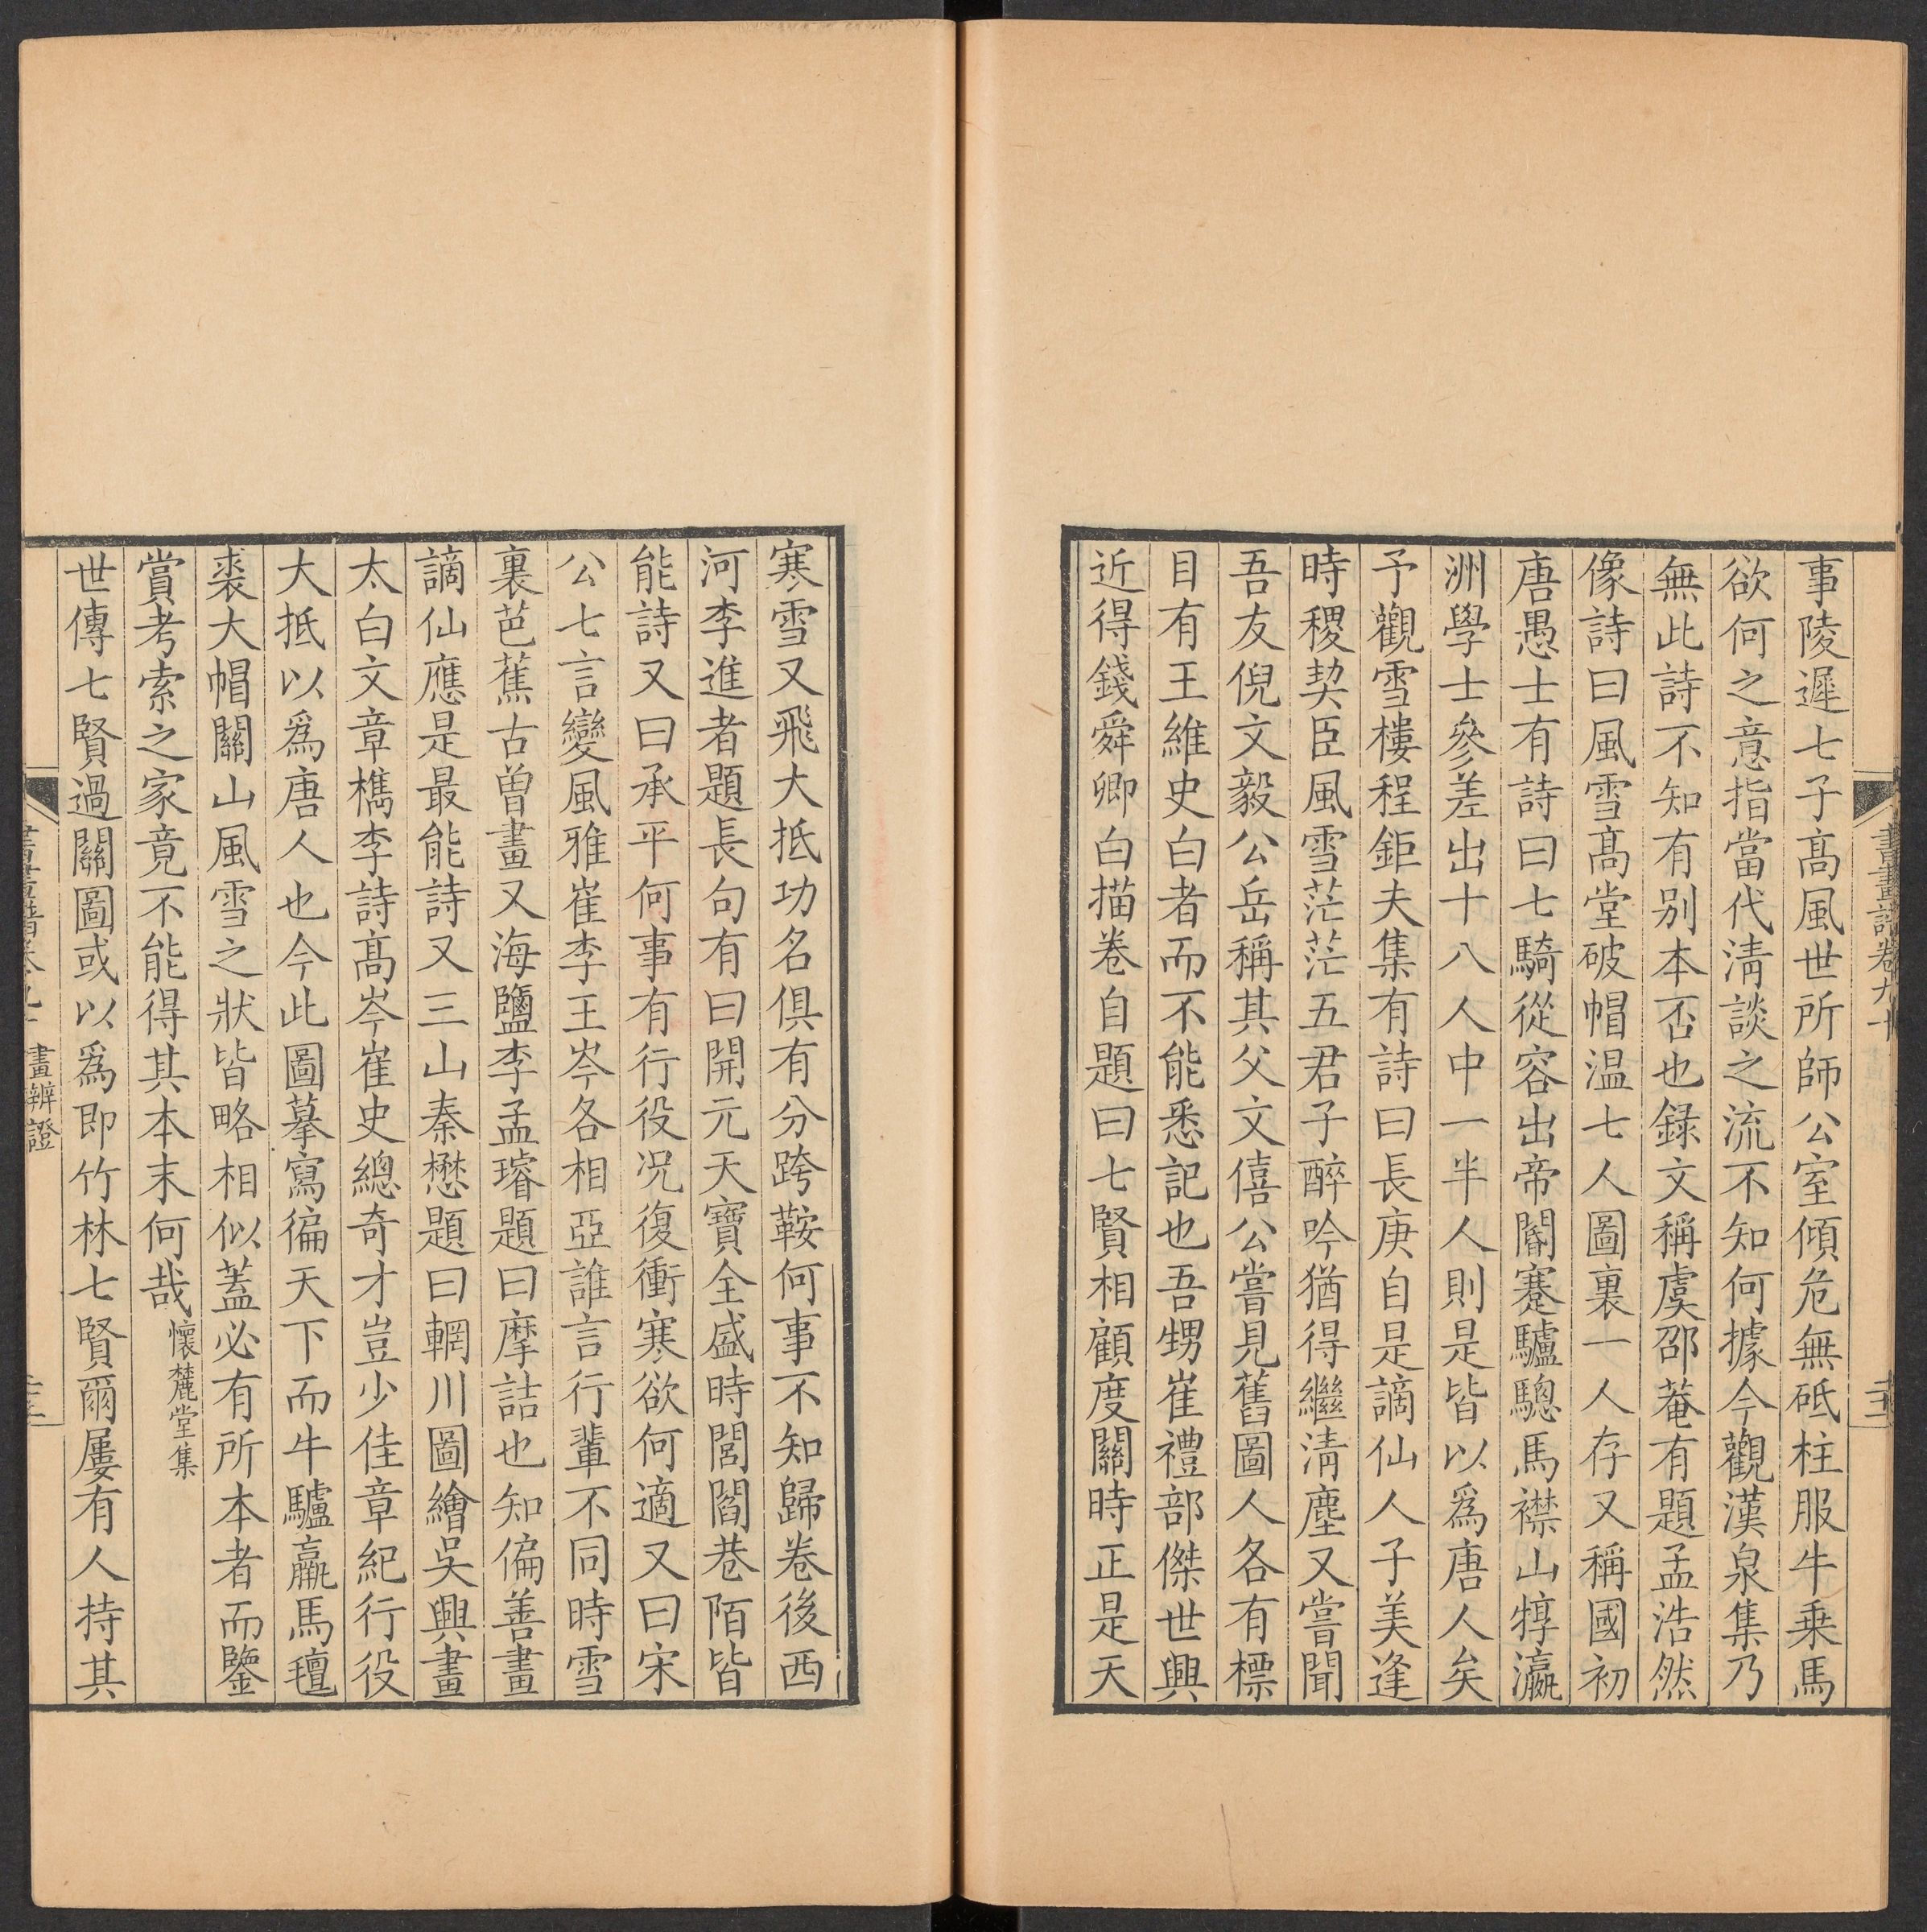 事陵遲七子髙風世所師公室傾危無砥柱服牛乗馬
欲何之意指當代淸談之流不知何據今觀漢泉集乃
無此詩不知有别本否也録文稱虞邵菴有題孟浩然
像詩曰風雪髙堂破帽温七人圖裏一人存又稱國初
唐愚士有詩曰七騎從容出帝閽蹇驢驄馬襟山犉瀛
洲學士參差出十八人中一半人則是皆以爲唐人矣
予觀雪樓程鉅夫集有詩曰長庚自是謫仙人子美逢
時稷契臣風雪茫茫五君子醉吟猶得繼淸塵又嘗聞
吾友倪文毅公岳稱其父文僖公嘗見舊圖人各有標
目有王維史白者而不能悉記也吾甥崔禮部傑世興
近得錢舜卿白描卷自題曰七賢相顧度關時正是天
書畫譜卷九十
寒雪又飛大抵功名俱有分跨鞍何事不知歸卷後西
河李進者題長句有曰開元天寶全盛時閭閻巷陌皆
能詩又曰承平何事有行役况復衝寒欲何適又曰宋
公七言變風雅崔李王岑各相亞誰言行輩不同時雪
裏芭蕉古曽畫又海鹽李孟璿題曰摩詰也知偏善畫
謫仙應是最能詩又三山秦懋題曰輞川圖繪吳興畫
太白文章檇李詩髙岑崔史總奇才豈少佳章紀行役
大抵以爲唐人也今此圖摹寫徧天下而牛驢羸馬氊
裘大帽關山風雪之狀皆略相似蓋必有所本者而鑒
賞考索之家竟不能得其本末何哉懷麓堂集
世傳七賢過關圖或以爲即竹林七賢爾屢有人持其
畫辨證